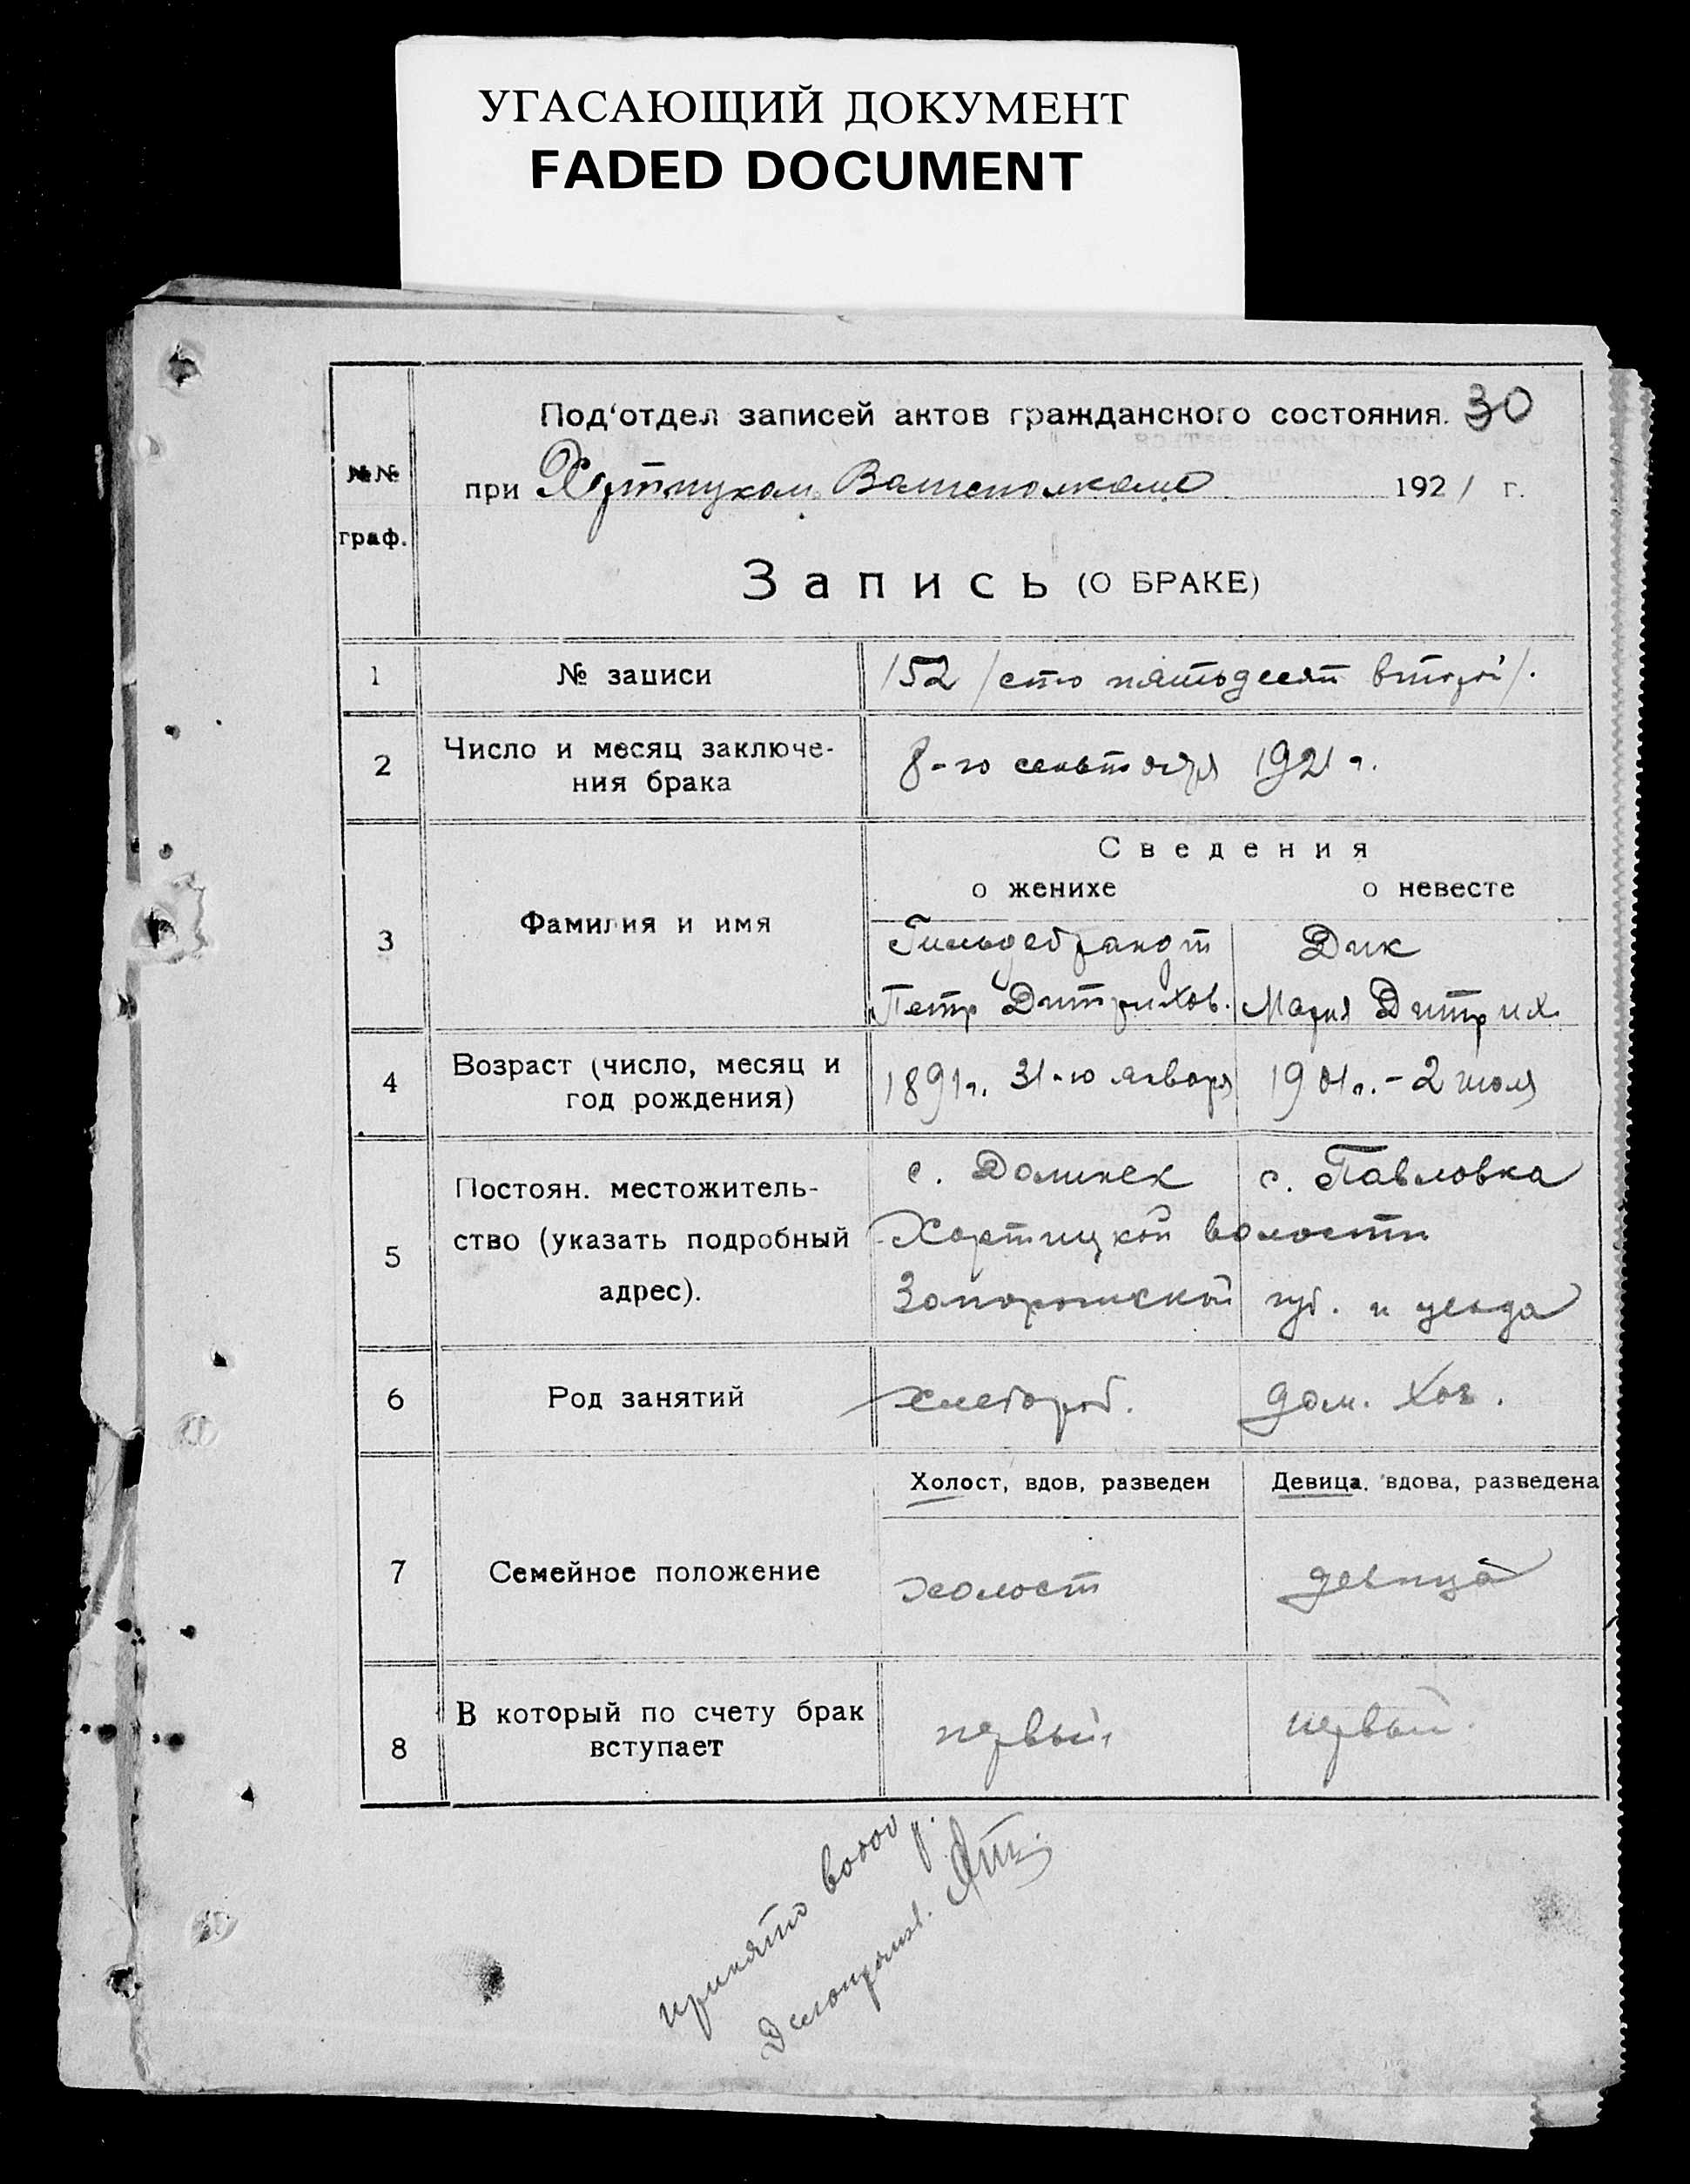 УГАСАЮЩИЙ ДОКУМЕНТ
FADED DOCUMENT
Под'отдел записей актов гражданского состояния. 30
№№ граф.
при Хортицком Волисполкоме 1921 г.
Запись (О БРАКЕ)
1 № записи 152 /сто пятьдесят второй/.
2 Число и месяц заключе-
ния брака 8-го сентября 1921 г.
Сведения
о женихе о невесте
3 Фамилия и имя Гильдебрандт Дик
Петр Дитрихов. Мария Дитрих.
4 Возраст (число, месяц и
год рождения) 1891 г. 31-го января 1901 г. - 2 июля
5 Постоян. местожитель-
ство (указать подробный
адрес).
с. Долинск с. Павловка
Хортицкой волости
Запорожской губ. и уезда
6 Род занятий хлебороб. дом. хоз.
Холост, вдов, разведен Девица, вдова, разведена
7 Семейное положение холост девица
8 В который по счету брак
вступает первый первый.
принято
Делопроизв.